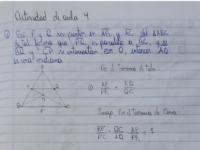 Actividad de aula 4
① Si P y Q son puntos en AB y AC del △ABC
de tal forma que PQ es paralelo a BC, y si
BQ y CP se intersectan en O, entonces AO
es una mediana.
Por el Teorema de Tales
① AP/PB = AQ/QC
Luego, Por el Teorema de Ceva
= 1